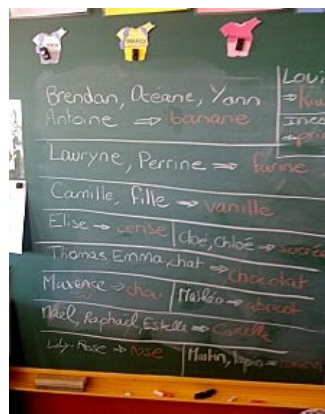 MARDI
Brendan, Océane, Yann
Antoine ⇒ banane
Louï
Lauryne, Perrine ⇒ farine
Camille, fille → vanille
Elise → cerise
Cloé, Chloé → sucrée
Thomas, Emma, chat → chocolat
Maxence → chou
Mathéo → abricot
Maël, Raphaël, Estelle →
Lily-Rose → rose
Martin, lapin →